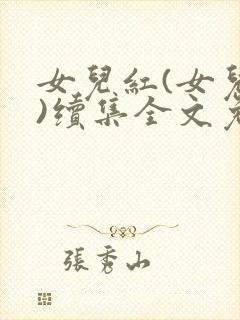 女兒紅(女兒
)續集全文
張秀山